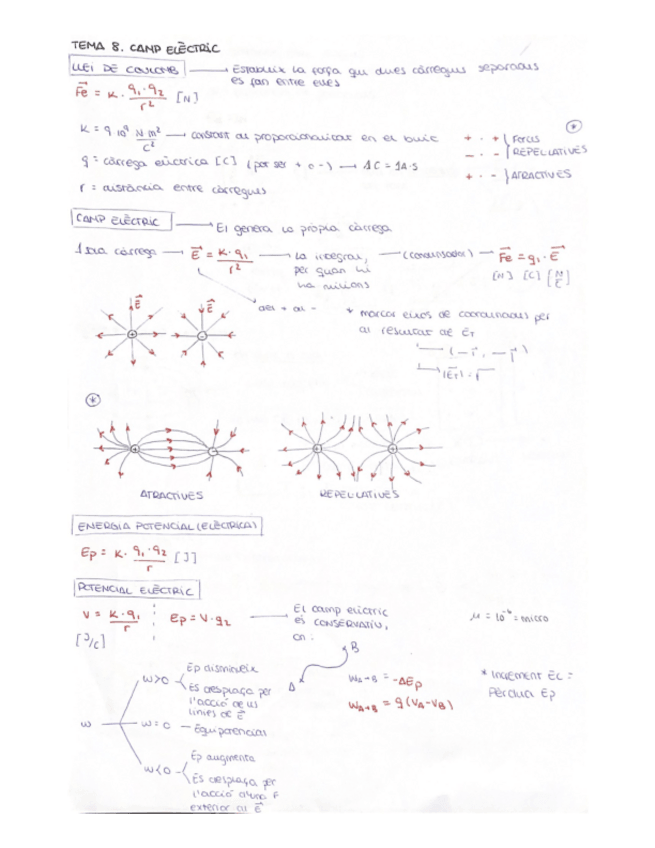 TEMA 8. CAMP ELÈCTRIC
LLEI DE COULOMB → Estableix la força que dues càrregues separades
es fan entre elles
Fe = K · q1·q2 / r² [N]
K = 9 10⁹ N m²/C² → constant de proporcionalitat en el buit
q = càrrega elèctrica [C] (pot ser + o -) → 1C = 1A·s
r = distància entre càrregues
+ · · + } Forces
- · · - } REPEL·LATIVES
+ · · - } ATRACTIVES
*
CAMP ELÈCTRIC → El genera la pròpia càrrega
1 sola càrrega → E = K·q1 / r² → la integral, → (condensador) → Fe = q1·E
per quan hi
ha milions
[N] [C] [N/C]
E
E
del + al -
* marcar eixos de coordenades per
al resultat de ET
( - i , - j )
|ET| = √
*
+ - + +
ATRACTIVES
REPEL·LATIVES
ENERGIA POTENCIAL (ELÈCTRICA)
Ep = K· q1·q2 / r [J]
POTENCIAL ELÈCTRIC
V = K·q1 / r Ep = V·q2 → El camp elèctric
[J/C]
és CONSERVATIU,
on:
μ = 10⁻⁶ = micro
B
A
WA→B = -ΔEp
WA→B = q(VA-VB)
* Increment Ec =
Pèrdua Ep
W
W>0
Ep disminueix
Es desplaça per
l'acció de les
línies de E
W=0 - Equipotencials
W<0
Ep augmenta
Es desplaça per
l'acció d'una F
exterior al E